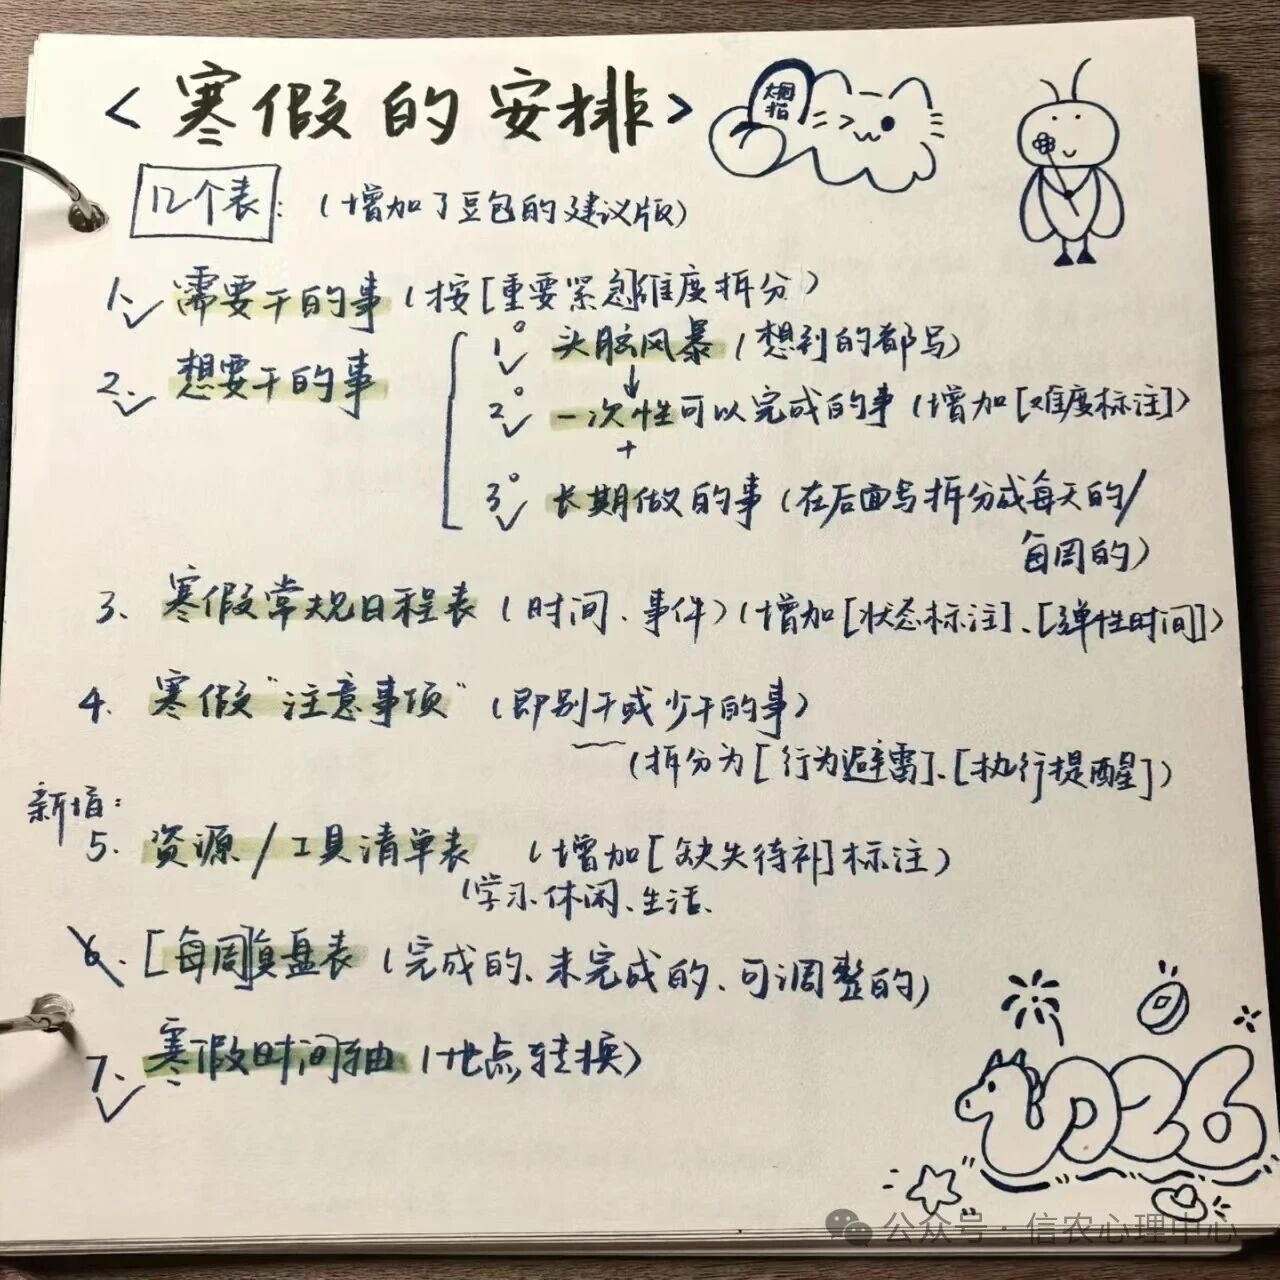 <寒假的安排>
大拇指
12个表：（增加了豆包的建议版）
1、需要干的事（按[重要紧急]维度拆分）
2、想要干的事
1° 头脑风暴（想到的都写）
↓
2° 一次性可以完成的事（增加[难度标注]）
+
3° 长期做的事（在后面写拆分成每天的/
每周的）
3、寒假常规日程表（时间、事件）（增加[状态标注]、[弹性时间]）
4、寒假"注意事项"（即别干或少干的事）
（拆分为[行为避雷]、[执行提醒]）
新增：
5、资源/工具清单表 （增加[缺失待补]标注）
（学习、休闲、生活、
6、[每周]复盘表（完成的、未完成的、可调整的）
7、寒假时间轴（地点转换）
2026
公众号·信农心理中心